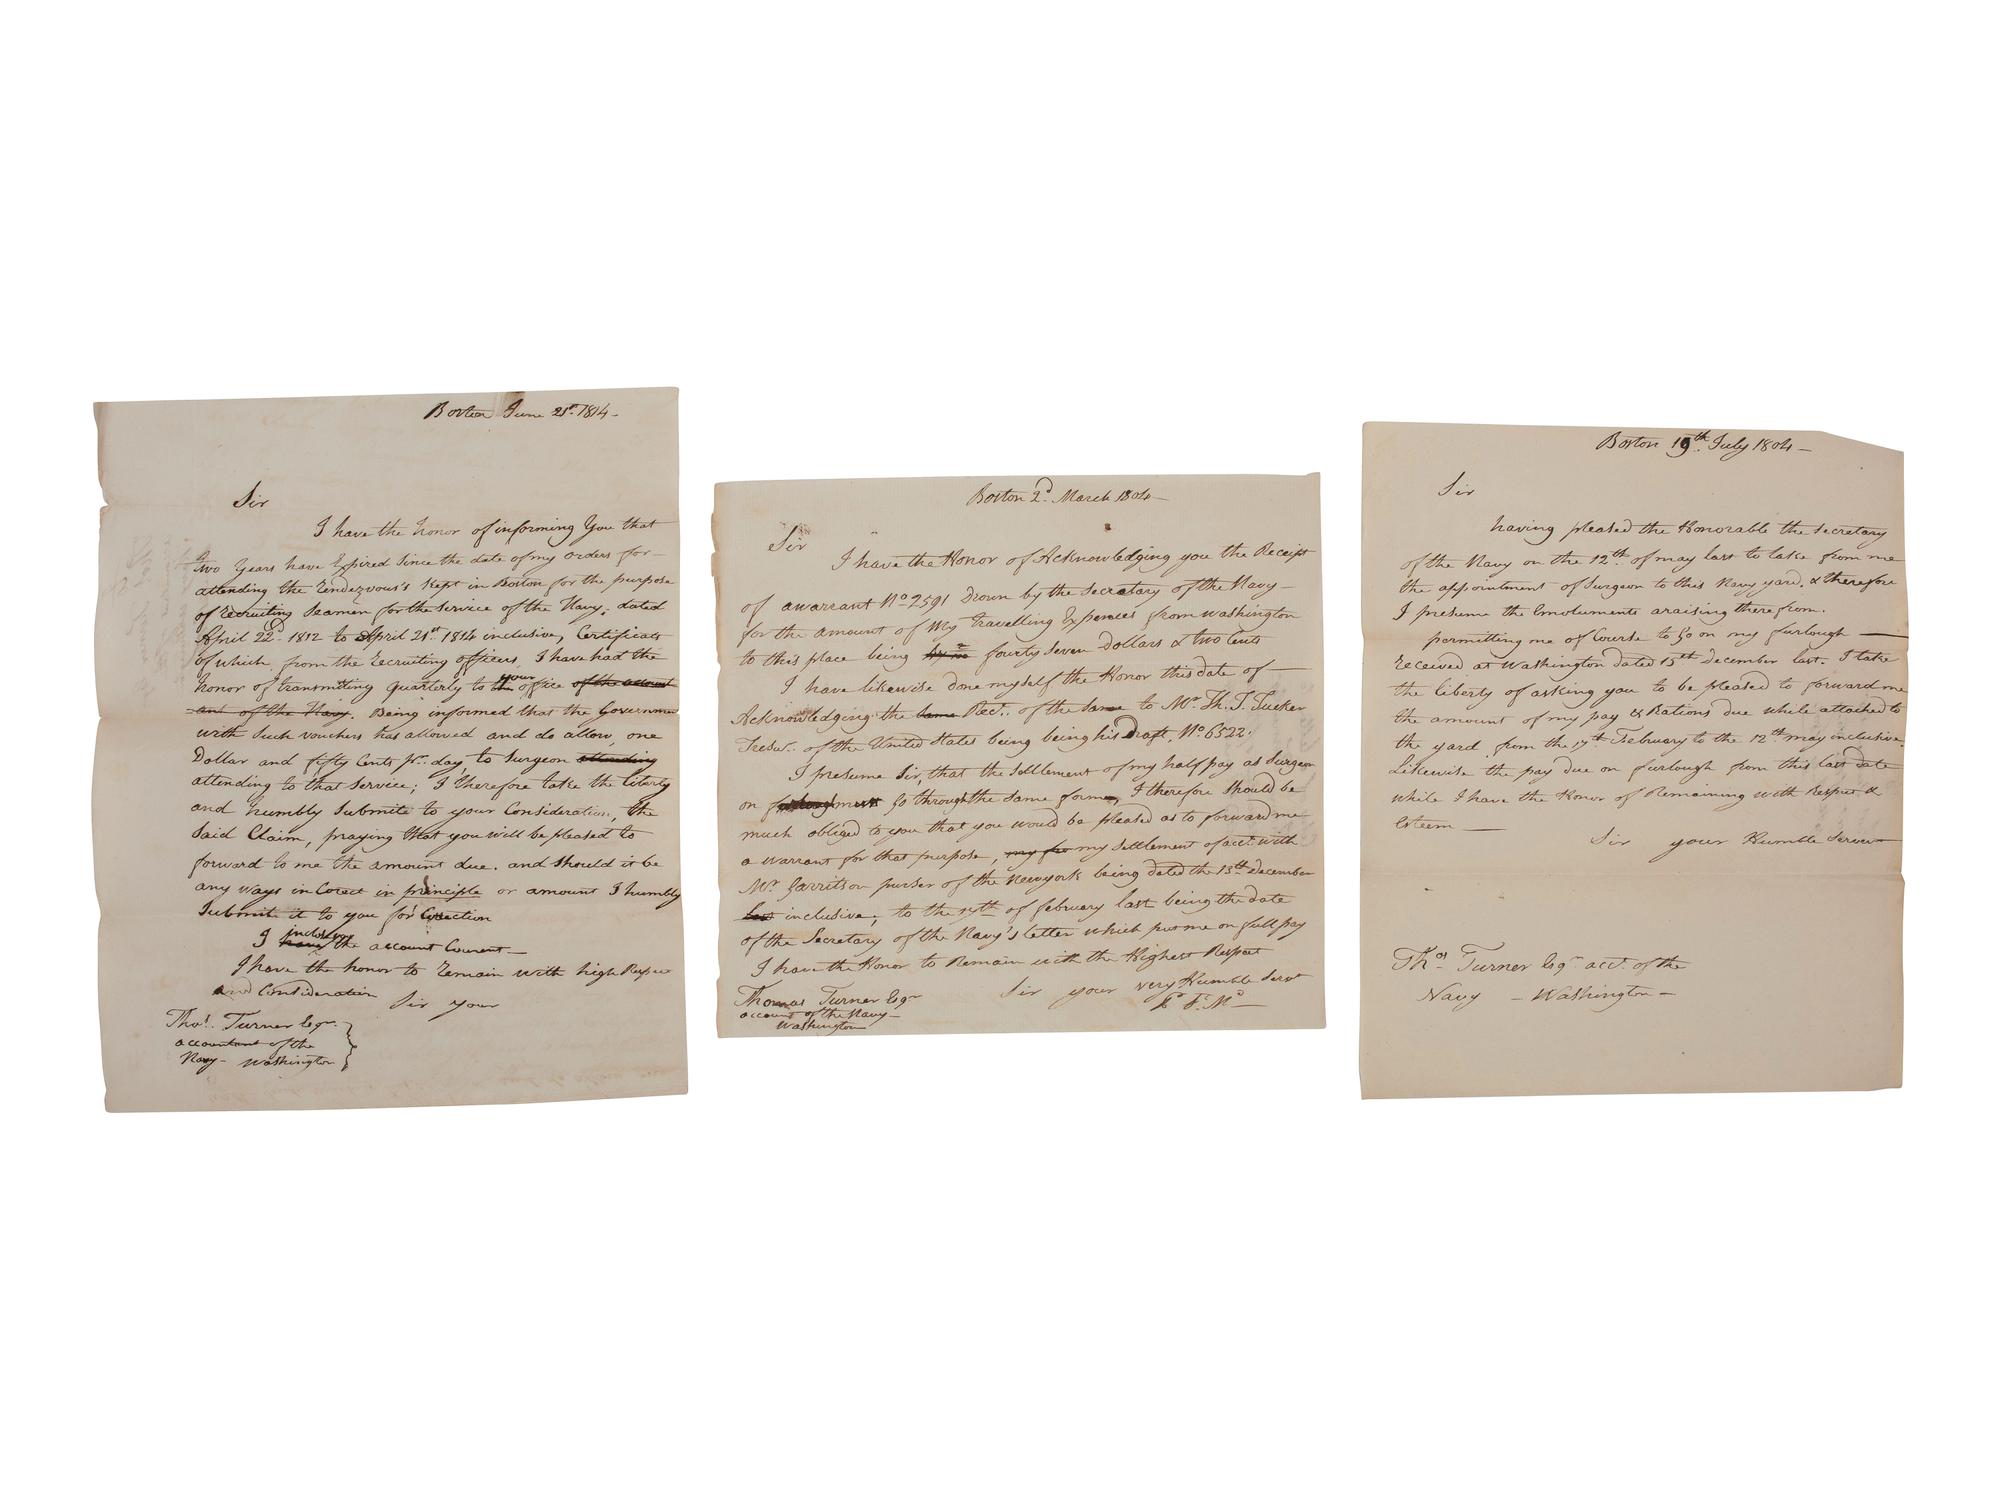 Boston June 21st 1814 -
Sir
I have the honor of informing You that
two Years have Expired Since the date of my orders for -
attending the Rendezvous's Kept in Boston for the purpose
of Recruiting Seamen for the Service of the Navy; dated
April 22d 1812 to April 21st 1814 inclusive, Certificats
of which, from the Recruiting officers, I have had the
honor of transmiting quarterly to your office of the account
ant of the Navy. Being informed that the Governme
with Such vouchers has allowed and do allow, one
Dollar and fifty Cents pr. day, to Surgeon attending
attending to that Service; I therefore take the liberty
and humbly Submite to your Consideration, the
Said Claim, praying that you will be pleased to
forward to me the amount due. and should it be
any ways in Corect in principle or amount I humbly
Submit it to you for Corection
I inclosing have the account Courent -
I have the honor to Remain with high Respect
and Consideration Sir your
Thos. Turner Esqr.
accountant of the
Navy - Washington
Boston 2d. March 1804 -
Sir
I have the Honor of Acknowledging you the Receipt
of a warrant No 2591 Drown by the Secretary of the Navy -
for the amount of My travelling Expences from Washington
to this place being fourty Seven Dollars & two Cents
I have likewise done myself the Honor this date of -
Acknowledging the Same Rect. of the Same to Mr. Th. T. Tucker
Tresur. of the United States being being his Draft, No 6522.
I presume Sir, that the Settlement of my half pay as Surgeon
on furlough must go through the Same forme, I therefore Should be
much obliged to you that you would be pleased as to forward me
a warrant for that purpose, my settlement of acct. with
Mr Garritson purser of the Newyork being dated the 15th December
last inclusive; to the 17th of february last being the date
of the Secretary of the Navy's letter which put me on full pay
I have the Honor to Remain with the Highest Respect
Sir your very Humble Servt
P. S. Md -
Thomas Turner Esqr
account of the Navy -
Washington
Boston 19th. July 1804 -
Sir
having pleased the Honorable the Secretary
of the Navy on the 12th of may last to take from me
the appointment of Surgeon to this Navy yard. & therefore
I presume the Emoluments araising therefrom.
permitting me of Course to go on my furlough -
Received at Washington dated 15th December last. I take
the liberty of asking you to be pleased to forward me
the amount of my pay & Rations due while attached to
the yard from the 17th February to the 12th may inclusive.
Likewise the pay due on furlough from this last date
while I have the Honor of Remaining with Respect &
Esteem -
Sir your Humble Servt
Thos. Turner Esqr acct. of the
Navy - Washington -